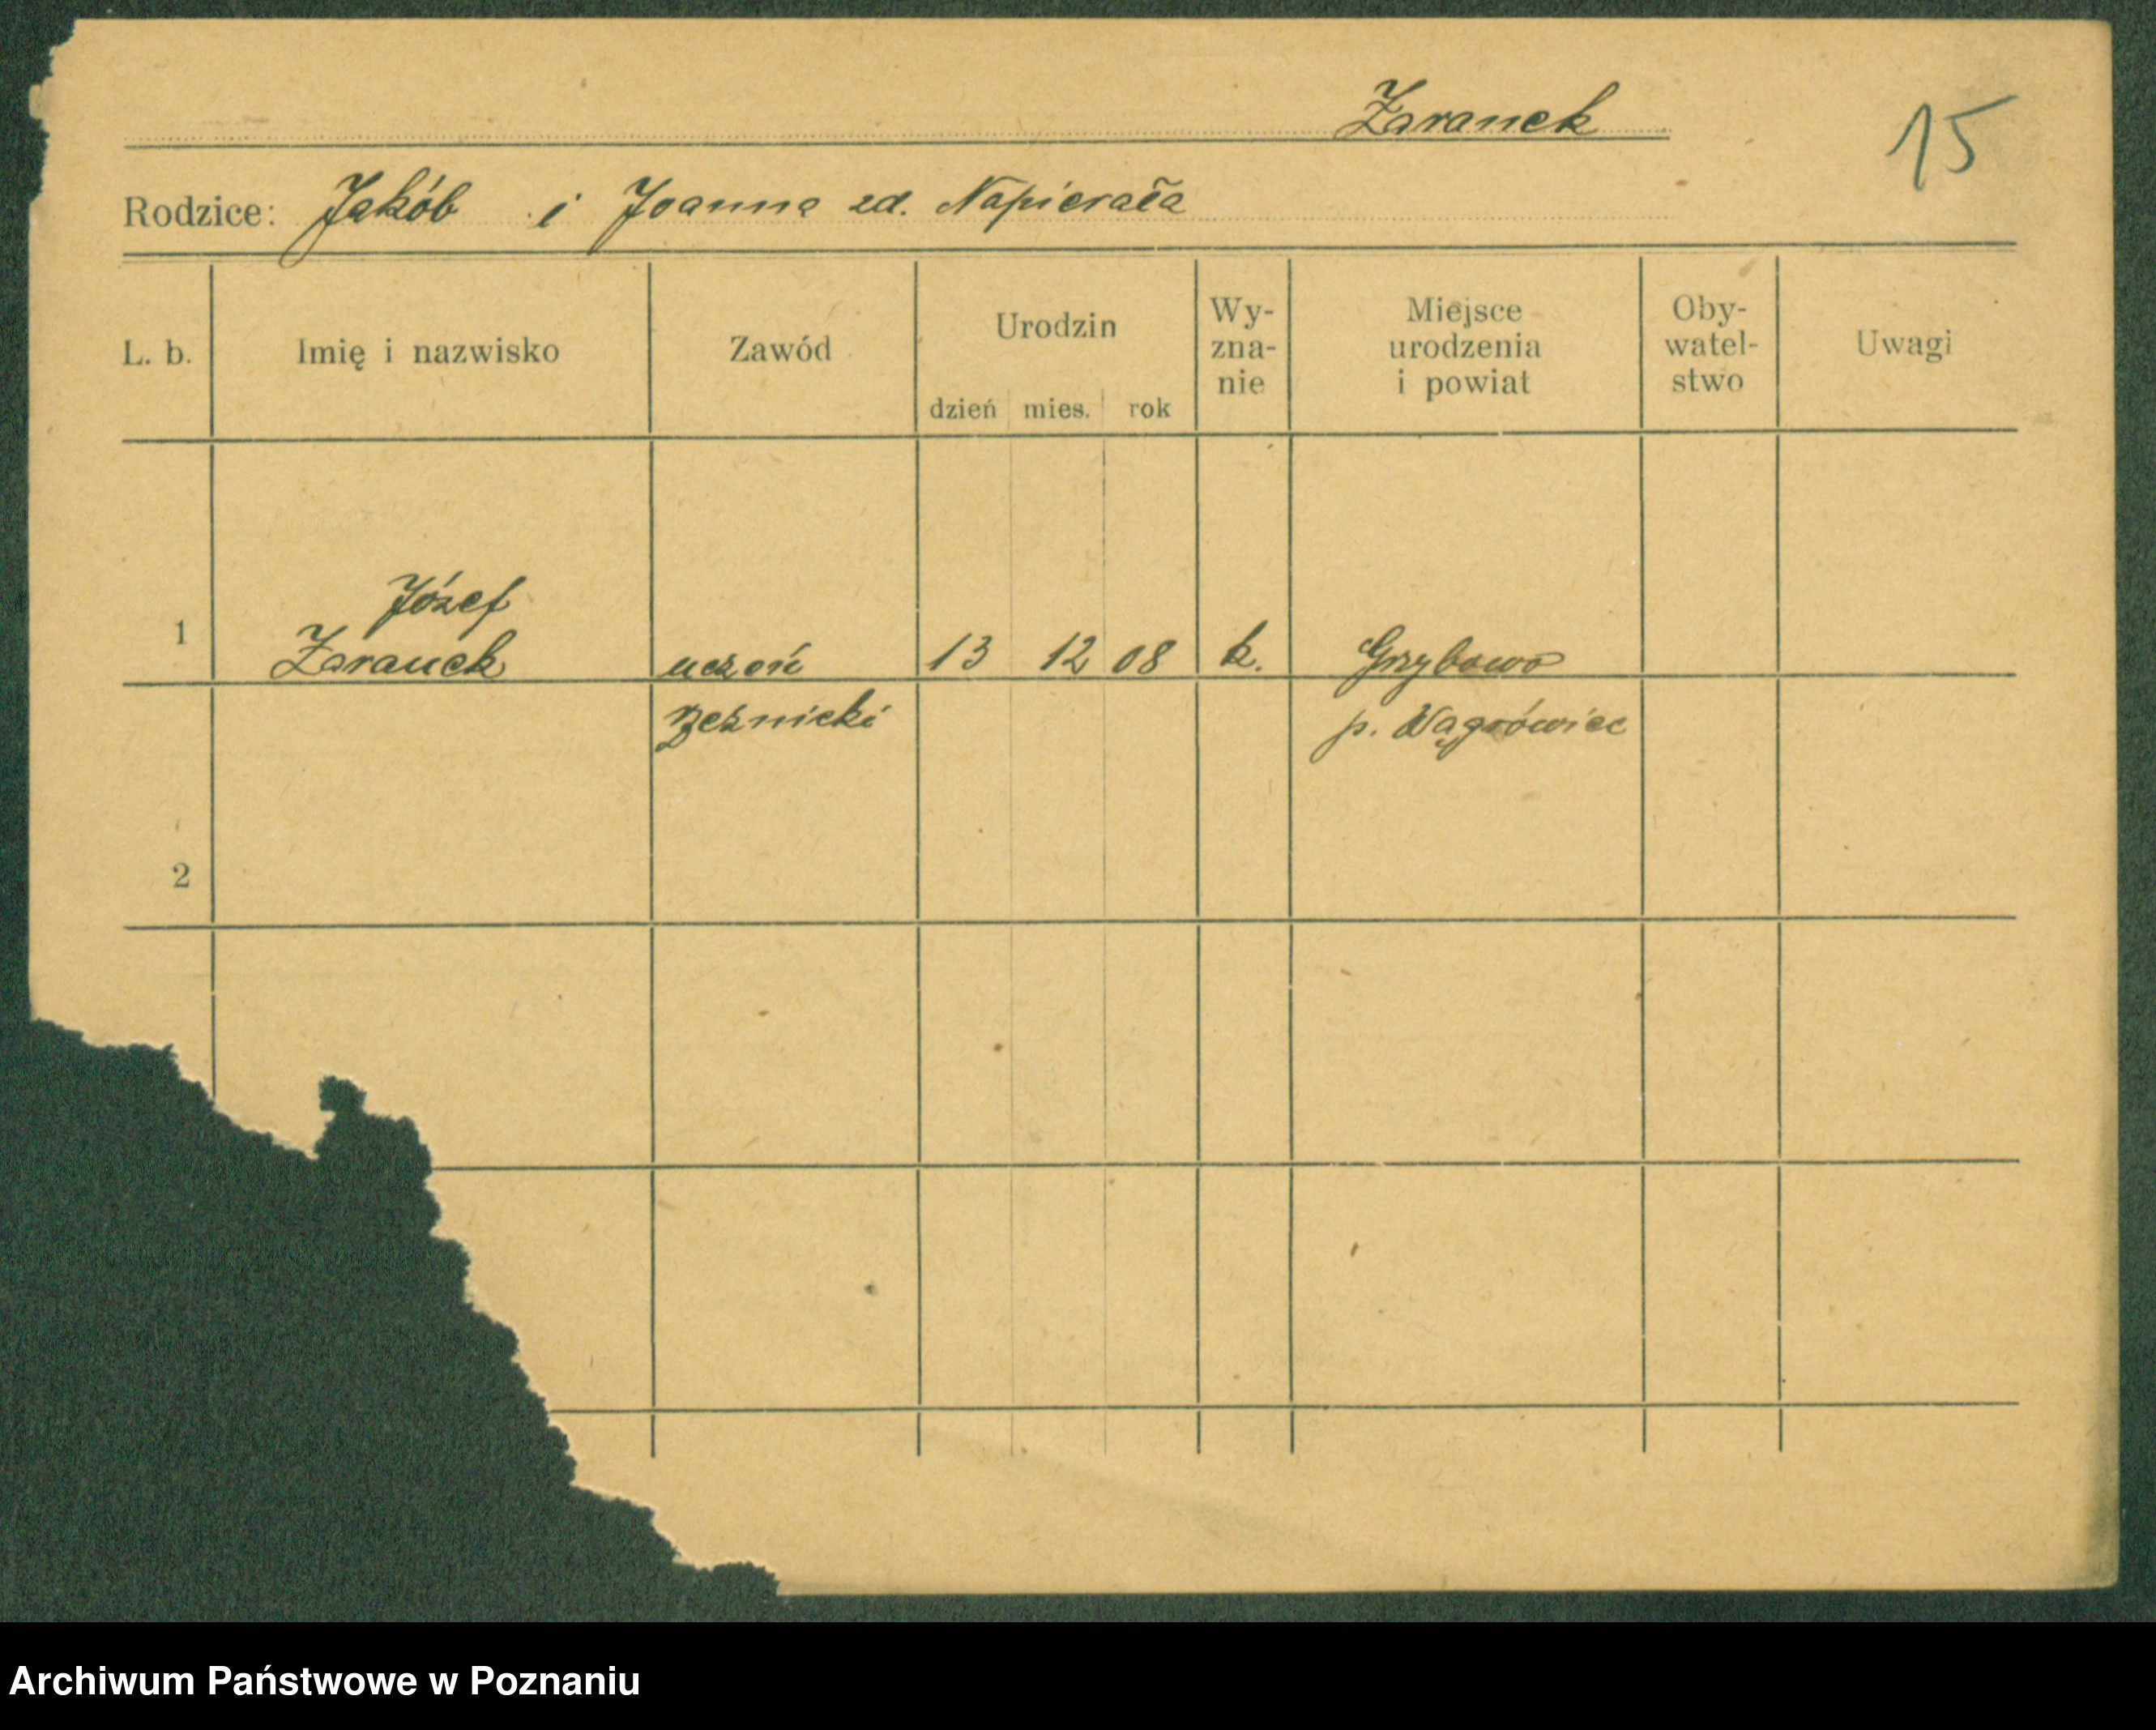 Zaranek
15
Rodzice: Jakób i Joanna zd. Napierała
L. b. Imię i nazwisko Zawód Urodzin dzień mies. rok Wy-znanie Miejsce urodzenia i powiat Oby-watel-stwo Uwagi
Józef
1 Zaranek uczeń 13 12 08 k. Grzybowo
rzeźnicki p. Wągrówiec
2
Archiwum Państwowe w Poznaniu